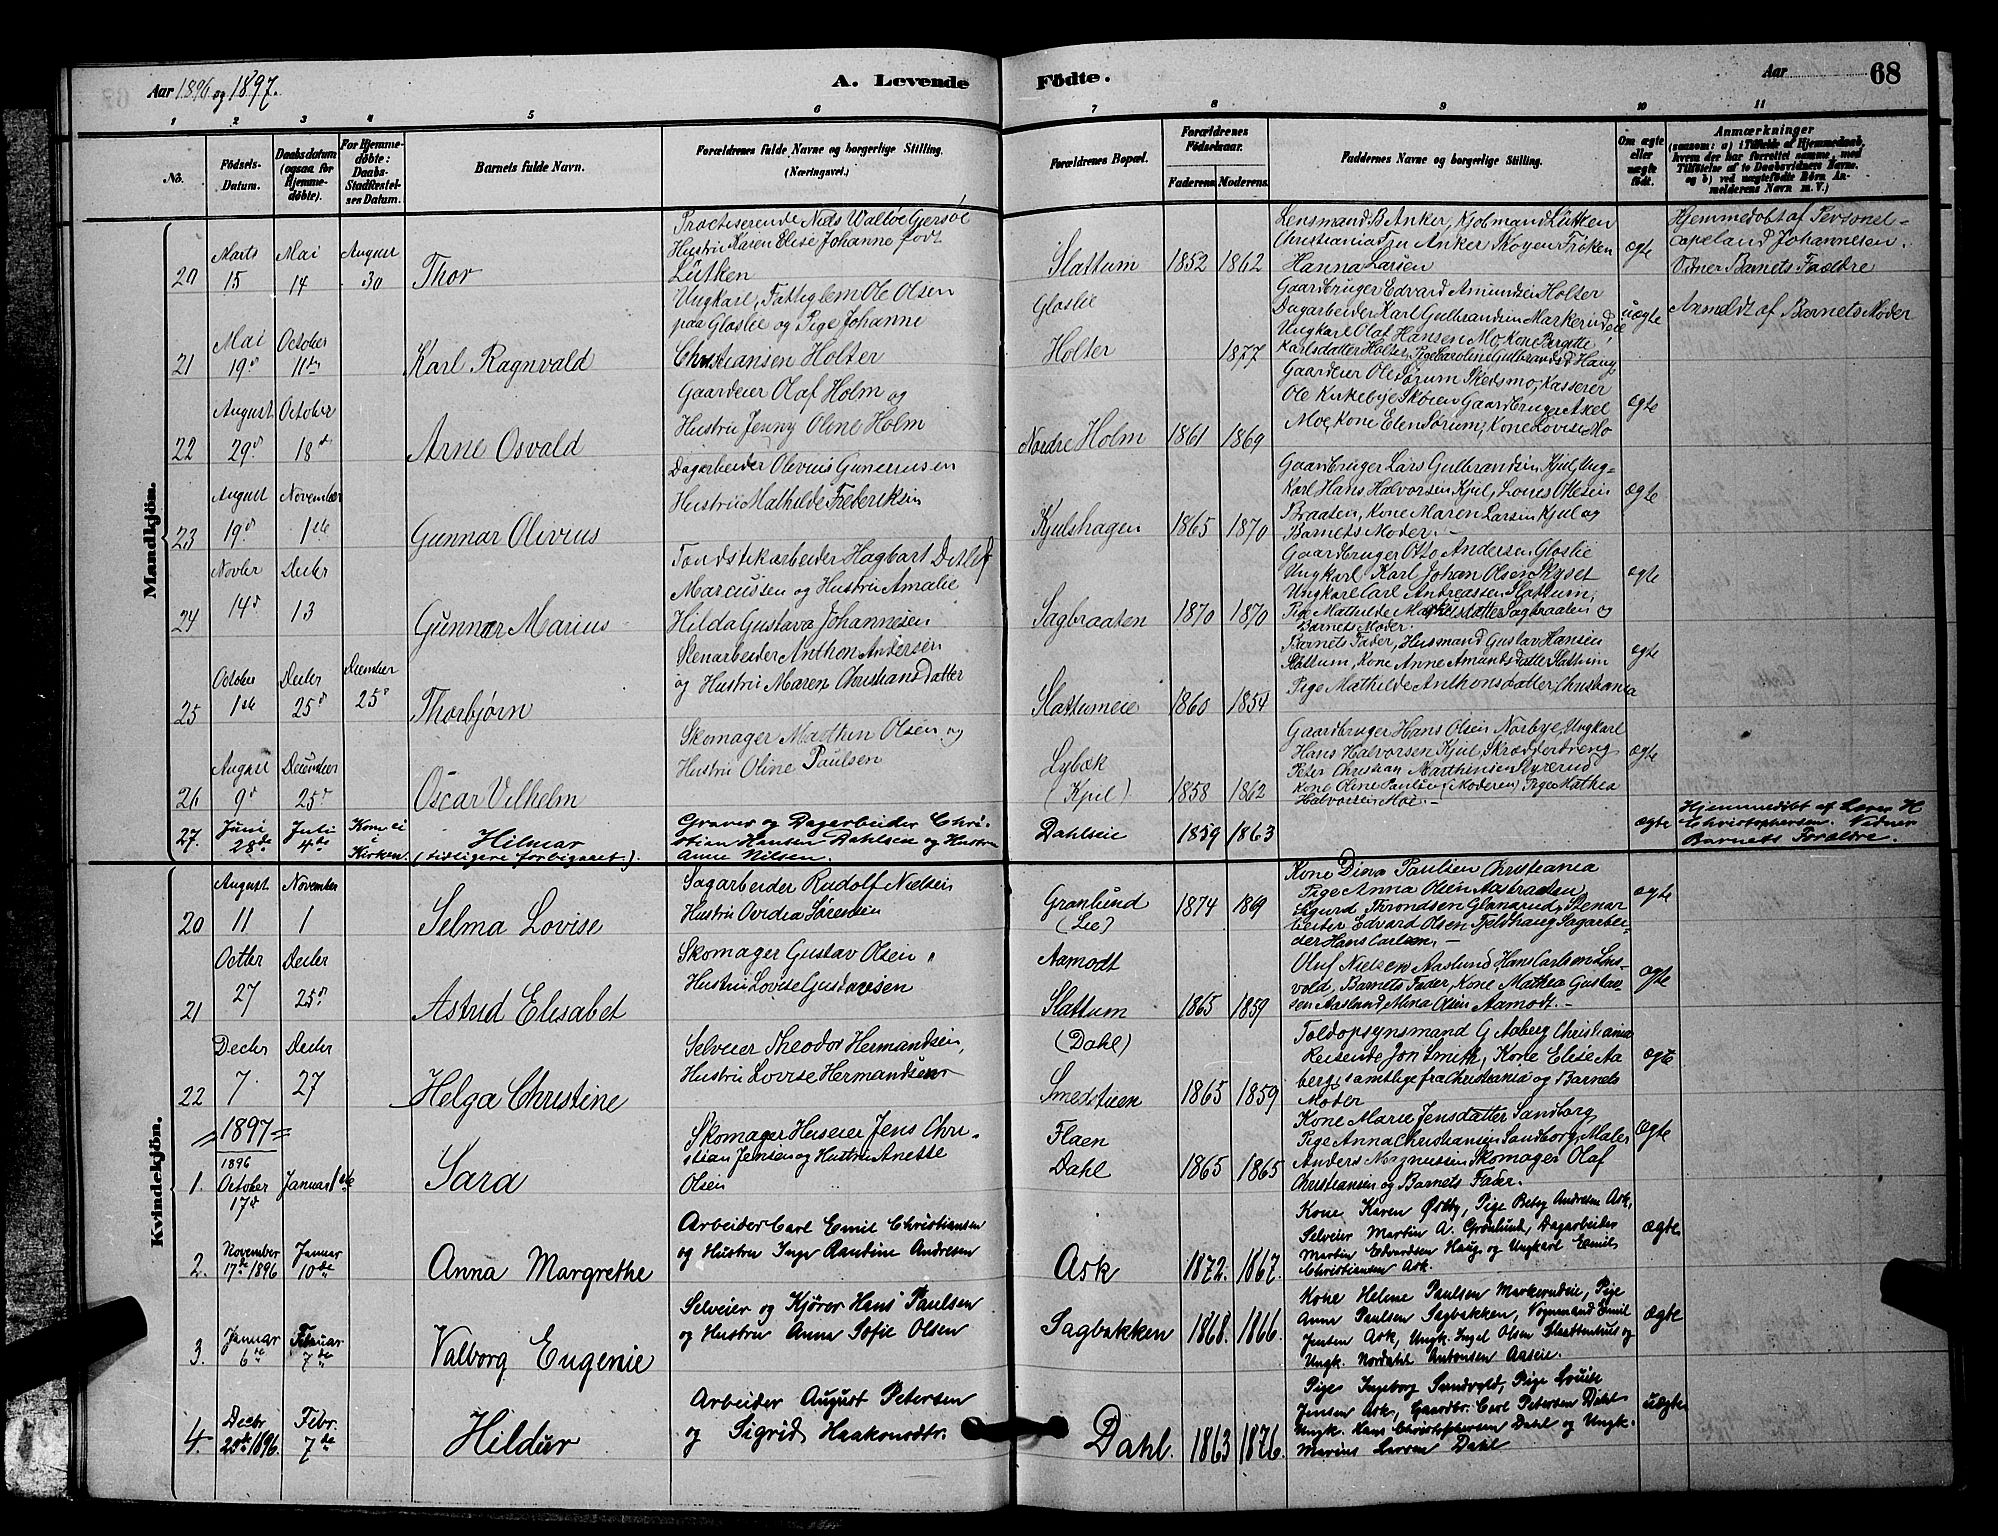 Aar 1896 og 1897.
A. Levende Födte.
Aar 68
1 2 3 4 5 6 7 8 9 10 11
No.
Födsels-Datum.
Daabsdatum (ogsaa for Hjemmedöbte).
For Hjemmedöbte: Daabs-Stadfæstelses Datum.
Barnets fulde Navn.
Forældrenes fulde Navne og borgerlige Stilling. (Næringsvei.)
Forældrenes Bopæl.
Forældrenes Födselsaar.
Faderens. Moderens.
Faddernes Navne og borgerlige Stilling.
Om ægte eller uægte födt.
Anmærkninger
(saasom: a) i Tilfælde af Hjemmedaab, hvem der har forrettet samme, med Tilföielse af to Daabsvidners Navne, og b) ved uægtefödte Börn Anmelderens Navn m. V.)
Mandkjön.
20 Marts 15 Mai 14 August 30 Thor
Practiserende Niels Walløe Gjersøe
Hustru Karen Elise Johanne født
Lütken
Slattum 1852 1862
Lensmand B Anker,
Christiania Anker Skøyen Frøken
Hanna Larsen
ægte
Hjemmedøbt af Personel-
capeland Johannesen.
Vidner Barnets Forældre
21 Mai 19d October 11te Karl Ragnvald
Ungkarl, Fattiglem Ole Olsen
paa Gloslie og Pige Johanne
Christiansen Holter
Gloslie
Holter 1877
Gaardbruger Edvard Amundsen Holter
Dagarbeider Karl Gulbrandsen Markerudeie
Ungkarl Olaf Hansen Mo, Kone Birgitte
Karlsdatter Holter, Pige Caroline Gulbrandsd. Haug
uægte
Anmeldt af Barnets Moder
22 August 29d October 18de Arne Osvald
Gaardeier Olaf Holm og
Hustru Jenny Oline Holm
Nordre Holm 1861 1869
Gaardeier Ole Sørum Skedsmo, Kasserer
Ole Kirkebye Skøien Gaardbruger Axel
Moe, Kone Elen Sørum, Kone Lovise Mo
ægte
23 August 19d November 1ste Gunnar Olivius
Dagarbeider Olevius Gunerius en
Hustru Mathilde Frederiksen
Kjulshagen 1865 1870
Gaardbruger Lars Gulbrandsen Kjul, Ung-
karl Hans Halvorsen Kjul, Louis Ottesen
Braaten, Kone Maren Larsen Kjul og
Barnets Moder.
ægte
24 Novbr 14d Decbr 13 Gunnar Marius
Tændstikarbeider Hagbart Detlef
Marcussen og Hustru Amalie
Hilda Gustava Johannesen
Sagbraaten 1870 1870
Gaardbruger Otto Andersen Gloslie
Ungkarl Karl Johan Olsen Skyset
Ungkarl Carl Andreassen Slattum,
Pige Mathilde Markusdatter Sagbraaten og
Barnets Moder.
ægte
25 October 1ste Decbr 25d December 25d Thorbjørn
Stenarbeider Anthon Andersen
og Hustru Maren Christiansdatter
Slattumeie 1860 1854
Barnets Fader, Husmand Gustav Hansen
Slattum, Kone Anne Amundsdatter Slattum
Pige Mathilde Anthonsdatter Christiania
ægte
26 August 9d December 25d Oscar Vilhelm
Skomager Mathin Olsen og
Hustru Oline Paulsen
Lybæk
(Kjul) 1858 1862
Gaardbruger Hans Olsen Norbye, Ungkarl
Hans Halvorsen Kjul, Skrædderdreng
Peter Christian Marthinsen Styrerud
Kone Oline Paulsen (Moderen) Pige Mathea
Halvorsen Moe.
ægte
27. Juni 28de Juli 4de Kom ei i Kirken Hilmar
(tidligere forbigaaet).
Graver og Dagarbeider Chri-
stian Hansen Dahlsen og Hustru
Anne Nilsen.
Dahlseie 1859 1863
ægte
Hjemmedöbt af Lærer H
Christophersen. Vidner
Barnets Forældre.
Kvindekjön.
20 August 11 November 1 Selma Lovise
Sagarbeider Rudolf Nielsen
Hustru Ovidia Sørensen
Granlund
(Lie) 1874 1869
Kone Dina Paulsen Christiania
Pige Anna Olsen Aasbraaten
Sigurd Throndsen Glanarud, Stenar
beider Edvard Olsen Fjeldhaug Sagarbei-
der Hans Carlsen.
ægte
21 Octbr 27 Decbr 25d Astrid Elisabet
Skomager Gustav Olsen
Hustru Lovise Gustavsen
Aamodt
Slattum 1865 1859
Oluf Nielsen Aaslund, Hans Carlsen Lus-
vold, Barnets Fader, Kone Mathea Gustav-
sen Aaslund, Mina Olsen Aamodt.
ægte
22 Decbr 7. Decbr 27 Helga Christine
Selveier Theodor Hermandsen,
Hustru Lovise Hermandsen
(Dahl)
Smedstuen 1865 1859
Toldopsynsmand G Aaberg Christiania
Reisende Jon Smith, Kone Elise Aa
berg, samtlige fra Christiania og Barnets
Moder
ægte
1897
1. 1896 October 17d Januar 1ste Sara
Skomager Huseier Jens Chri-
stian Jensen og Hustru Anette
Olsen
Flaen
Dahl 1865 1865
Kone Marie Jensdatter Sandborg
Pige Anna Christiansen Sandborg, Maler
Anders Magnussen Skomager Olaf
Christiansen og Barnets Fader.
ægte
2. November 17de 1896 Januar 10de Anna Margrethe
Arbeider Carl Emil Christiansen
og Hustru Inga Randine Andresen
Ask 1872. 1867.
Kone Karen Østby, Pige Betsy Andresen Ask,
Selveier Martin A. Grønlund, Dagarbeider
Martin Edvardsen Haug og Ungkarl Emil
Christiansen Ask.
ægte
3. Januar 6te Februar 7de Valborg Eugenie
Selveier og Kjører Hans Paulsen
og Hustru Anna Sofie Olsen
Sagbakken 1868. 1866.
Kone Helene Paulsen Markerudeie, Pige
Anna Paulsen Sagbakken, Vognmand Emil
Jensen Ask, Ungk. Ingel Olsen Slattumhus og
Ungk. Nordahl Antonsen Aaseie.
ægte
4. Decbr 20de 1896. Febr. 7de Hildur
Arbeider August Petersen
og Sigrid Haakonsdtr.
Dahl. 1863 1876.
Pige Ingeborg Sundvold, Pige Louise
Jensen Ask, Gaardbr. Carl Petersen Dahl
Ungk. Hans Christophersen Dahl og Ungk.
Marius Larsen Dahl
uægte